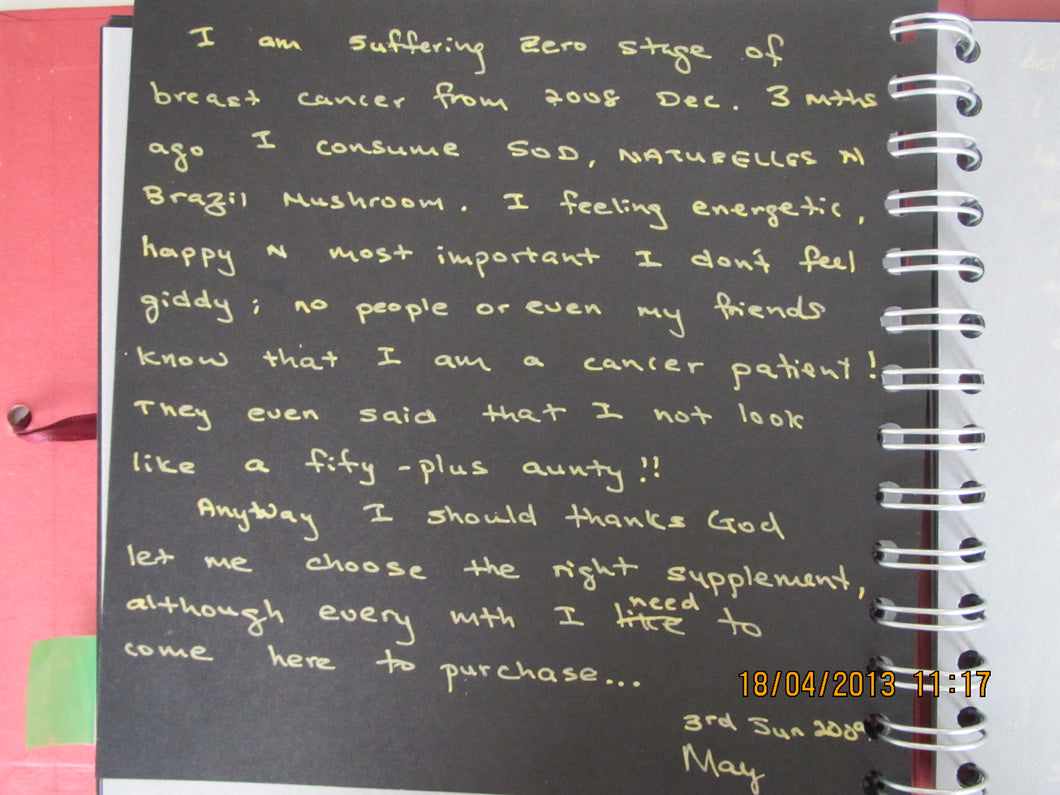 I am suffering zero stage of
breast cancer from 2008 Dec. 3 mths
ago I consume SOD, NATURELLES N
Brazil Mushroom. I feeling energetic,
happy N most important I don't feel
giddy ; no people or even my friends
know that I am a cancer patient!
They even said that I not look
like a fify - plus aunty!!
Anyway I should thanks God
let me choose the right supplement,
although every mth I like need to
come here to purchase...
18/04/2013 11:17
3rd Jun 2009
May